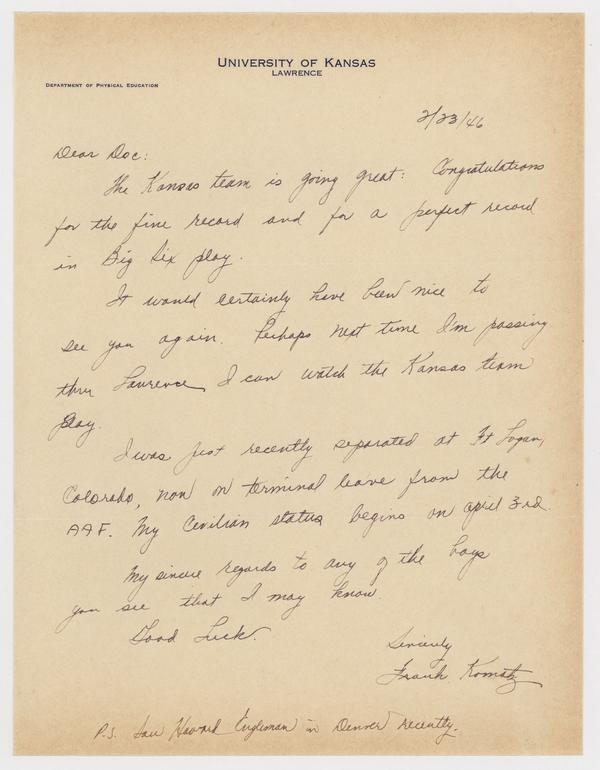 UNIVERSITY OF KANSAS
LAWRENCE
DEPARTMENT OF PHYSICAL EDUCATION
2/23/46
Dear Doc:
The Kansas team is going great: Congratulations
for the fine record and for a perfect record
in Big Six play.
It would certainly have been nice to
see you again. Perhaps next time I'm passing
thru Lawrence, I can watch the Kansas team
play.
I was just recently separated at Ft Logan,
Colorado, now on terminal leave from the
AAF. My civilian status begins on april 3rd.
My sincere regards to any of the boys
you see that I may know.
Good Luck.
Sincerely
Frank
P.S. Saw Howard Engleman in Denver recently.